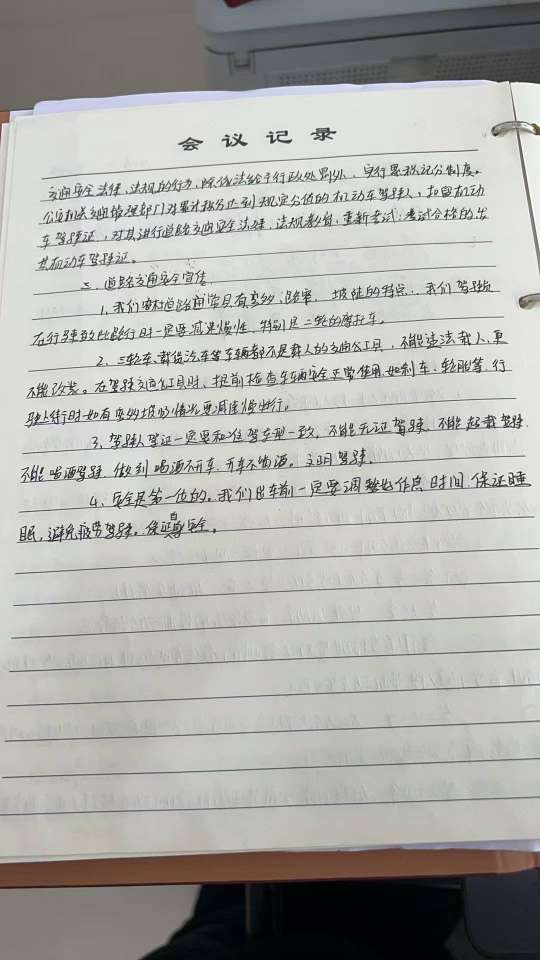 会议记录
交通安全法律、法规的行为,除依法给予行政处罚外,实行累积记分制度。
公安机关交通管理部门对累计积分达到规定分值的机动车驾驶人,扣留机动
车驾驶证,对其进行道路交通安全法律、法规教育,重新考试;考试合格的发
其机动车驾驶证。
三、道路交通安全宣传
1、我们农村道路通常具有弯多、路窄、坡陡的特点,我们驾驶员
在行驶时一定要减速慢性,特别是二轮的摩托车。
2、三轮车、载货汽车等车辆都不是载人的交通工具,不能违法载人,更
不能改装。在驾驶交通工具时,提前检查车辆安全正常使用,如刹车、轮胎等,行
驶时如有弯多坡的情况要减速慢行。
3、驾驶人驾证一定要和准驾车型一致,不能无证驾驶,不能超载驾驶,
不能喝酒驾驶,做到喝酒不开车,开车不喝酒。文明驾驶。
4、安全是第一位的。我们出车前一定要调整好作息时间,保证睡
眠,避免疲劳驾驶。保证自身安全。